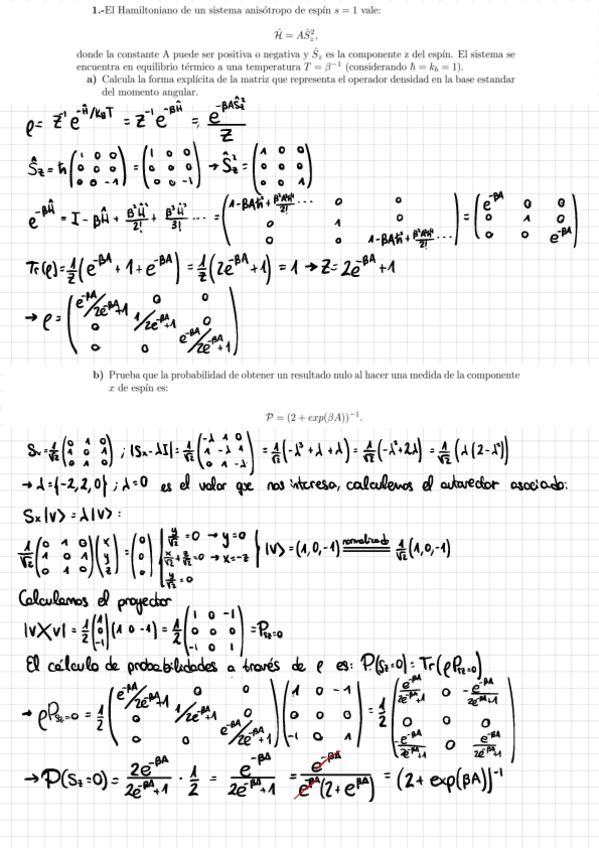 1.-El Hamiltoniano de un sistema anisótropo de espín s = 1 vale:
Ĥ = AŜ_z²,
donde la constante A puede ser positiva o negativa y Ŝ_z es la componente z del espín. El sistema se
encuentra en equilibrio térmico a una temperatura T = β⁻¹ (considerando ħ = k_b = 1).
a) Calcula la forma explícita de la matriz que representa el operador densidad en la base estandar
del momento angular.
ρ = Z⁻¹ e^(-Ĥ/k_BT) = Z⁻¹ e^(-βĤ) = e^(-βAŜ_z²) / Z
Ŝ_z = ħ (1 0 0 / 0 0 0 / 0 0 -1) = (1 0 0 / 0 0 0 / 0 0 -1) → Ŝ_z² = (1 0 0 / 0 0 0 / 0 0 1)
e^(-βĤ) = I - βĤ + β²Ĥ²/2! + β³Ĥ³/3! ... = = (e^(-βA) 0 0 / 0 1 0 / 0 0 e^(-βA))
Tr(ρ) = 1/Z (e^(-βA) + 1 + e^(-βA)) = 1/Z (2e^(-βA) + 1) = 1 → Z = 2e^(-βA) + 1
→ ρ = (e^(-βA)/2e^(-βA)+1 0 0 / 0 1/2e^(-βA)+1 0 / 0 0 e^(-βA)/2e^(-βA)+1)
b) Prueba que la probabilidad de obtener un resultado nulo al hacer una medida de la componente
x de espín es:
P = (2 + exp(βA))⁻¹.
S_x = 1/√2 (0 1 0 / 1 0 1 / 0 1 0) ; |S_x - λI| = 1/√2 (-λ 1 0 / 1 -λ 1 / 0 1 -λ) = 1/√2 (-λ³ + λ + λ) = 1/√2 (-λ³ + 2λ) = 1/√2 (λ(2 - λ²))
→ λ = {-2, 2, 0} ; λ = 0 es el valor que nos interesa, calculemos el autovector asociado:
S_x |v⟩ = λ|v⟩ :
1/√2 (0 1 0 / 1 0 1 / 0 1 0) (x / y / z) = (0 / 0 / 0) { y/√2 = 0 → y = 0 / x/√2 + z/√2 = 0 → x = -z / y/√2 = 0 } |v⟩ = (1, 0, -1) normalizado 1/√2 (1, 0, -1)
Calculamos el proyector
|v⟩⟨v| = 1/2 (1 / 0 / -1) (1 0 -1) = 1/2 (1 0 -1 / 0 0 0 / -1 0 1) = P_(Sz=0)
El cálculo de probabilidades a través de ρ es: P(S_z=0) = Tr(ρP_(Sz=0))
→ ρP_(Sz=0) = 1/2 (e^(-βA)/2e^(-βA)+1 0 0 / 0 1/2e^(-βA)+1 0 / 0 0 e^(-βA)/2e^(-βA)+1) (1 0 -1 / 0 0 0 / -1 0 1) = 1/2 (e^(-βA)/2e^(-βA)+1 0 -e^(-βA)/2e^(-βA)+1 / 0 0 0 / -e^(-βA)/2e^(-βA)+1 0 e^(-βA)/2e^(-βA)+1)
→ P(S_z=0) = 2e^(-βA)/2e^(-βA)+1 · 1/2 = e^(-βA)/2e^(-βA)+1 = e^(-βA)/e^(-βA)(2+e^(βA)) = (2 + exp(βA))⁻¹